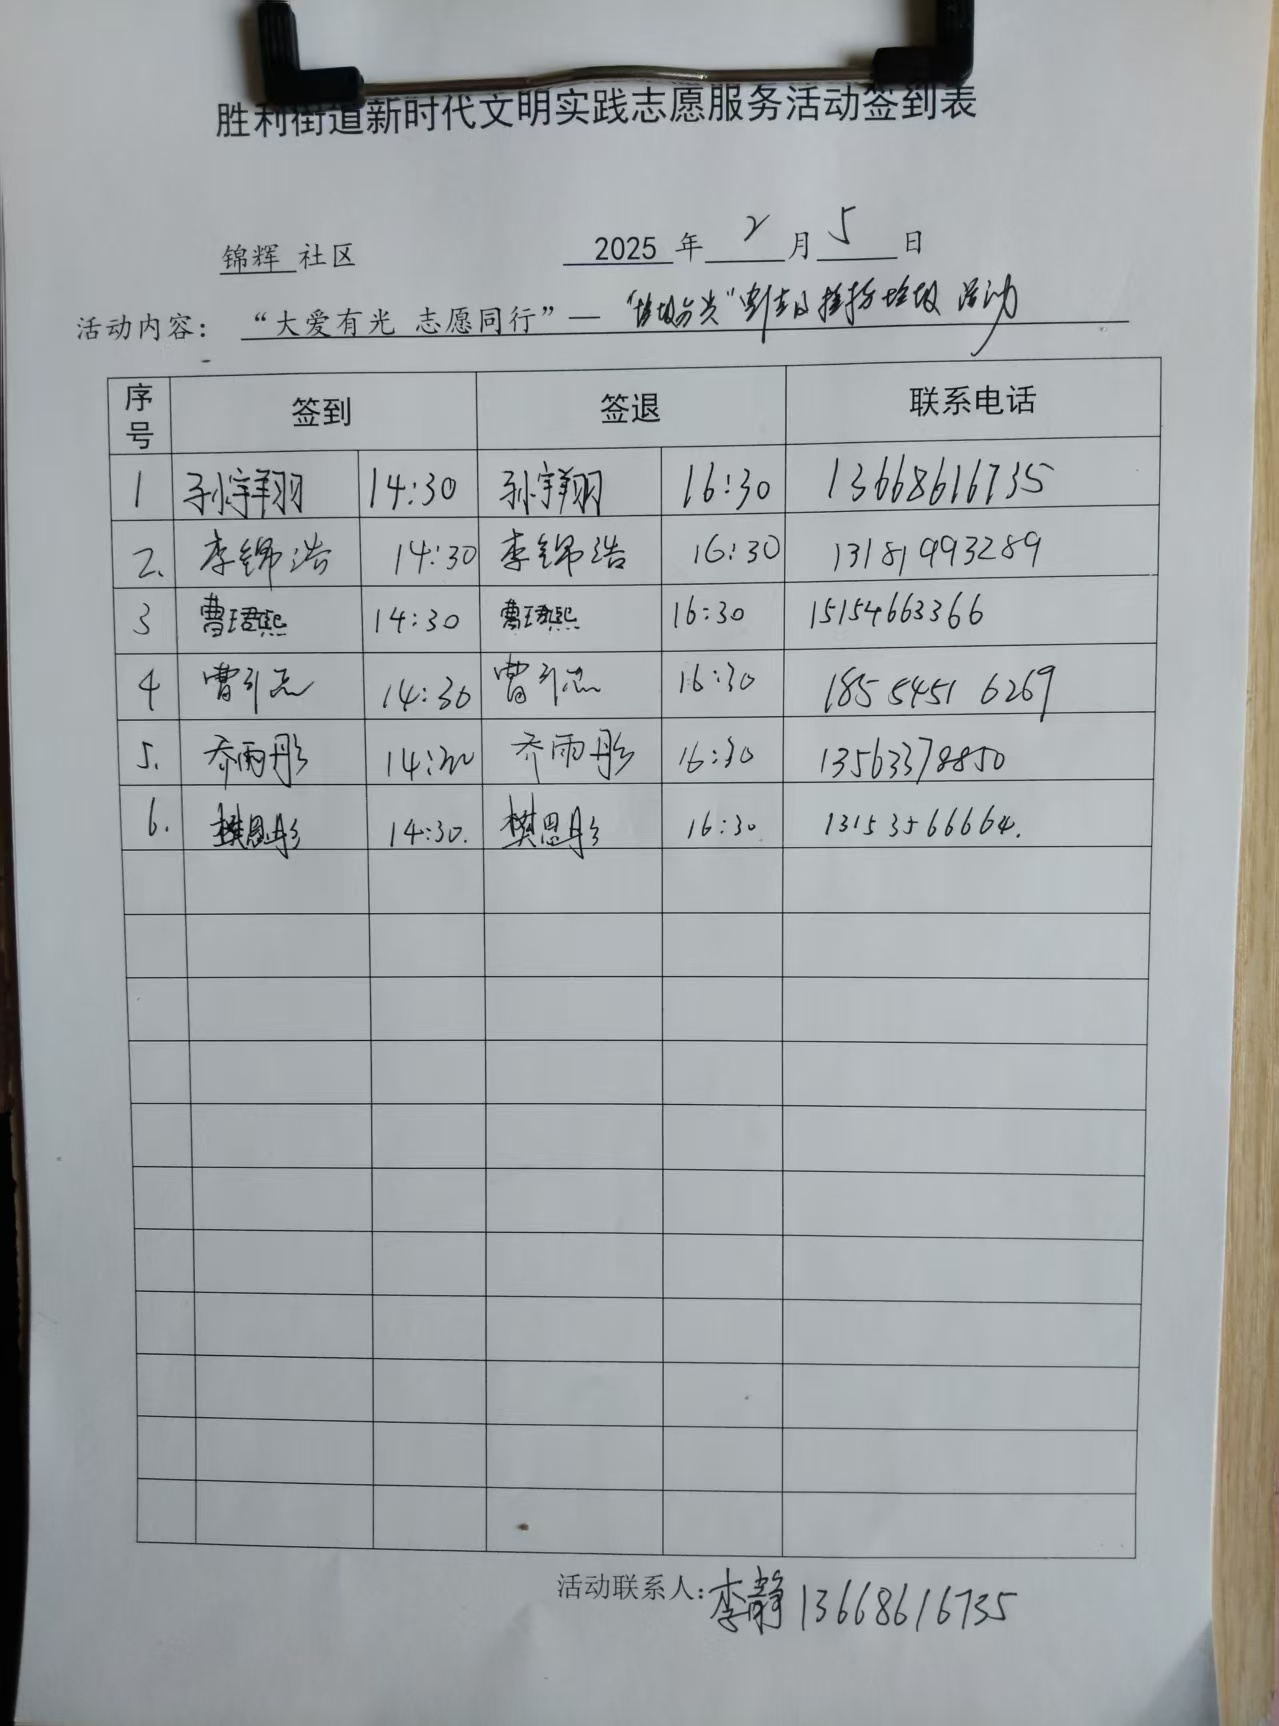 胜利街道新时代文明实践志愿服务活动签到表
锦辉 社区 2025 年 2 月 5 日
活动内容: “大爱有光 志愿同行”— “垃圾分类” 垃圾 活动
序号 签到 签退 联系电话
1 孙宇翔 14:30 孙宇翔 16:30 13668616735
2. 李锦浩 14:30 李锦浩 16:30 13181993289
3 曹珺熙 14:30 曹珺熙 16:30 15154663366
4 曹引志 14:30 曹引志 16:30 185 5451 6269
5. 乔雨彤 14:30 乔雨彤 16:30 13563378850
6. 樊恩彤 14:30. 樊恩彤 16:30 13153566664.
活动联系人: 李静 13668616735